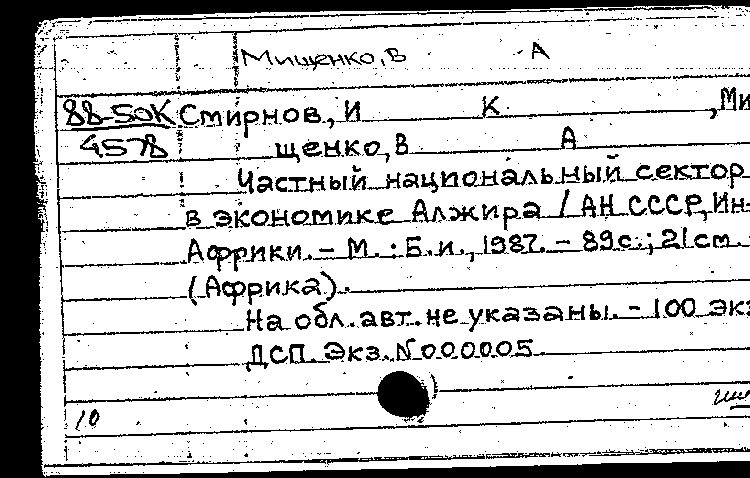 Мищенко, В А
88-50К Смирнов, И К , Ми
4578 щенко, В А
Частный национальный сектор
в экономике Алжира / АН СССР, Ин-
Африки. - М. : Б.и., 1987. - 89с.; 21см.
(Африка).
На обл. авт. не указаны. - 100 экз
ДСП. Экз. N000005
10